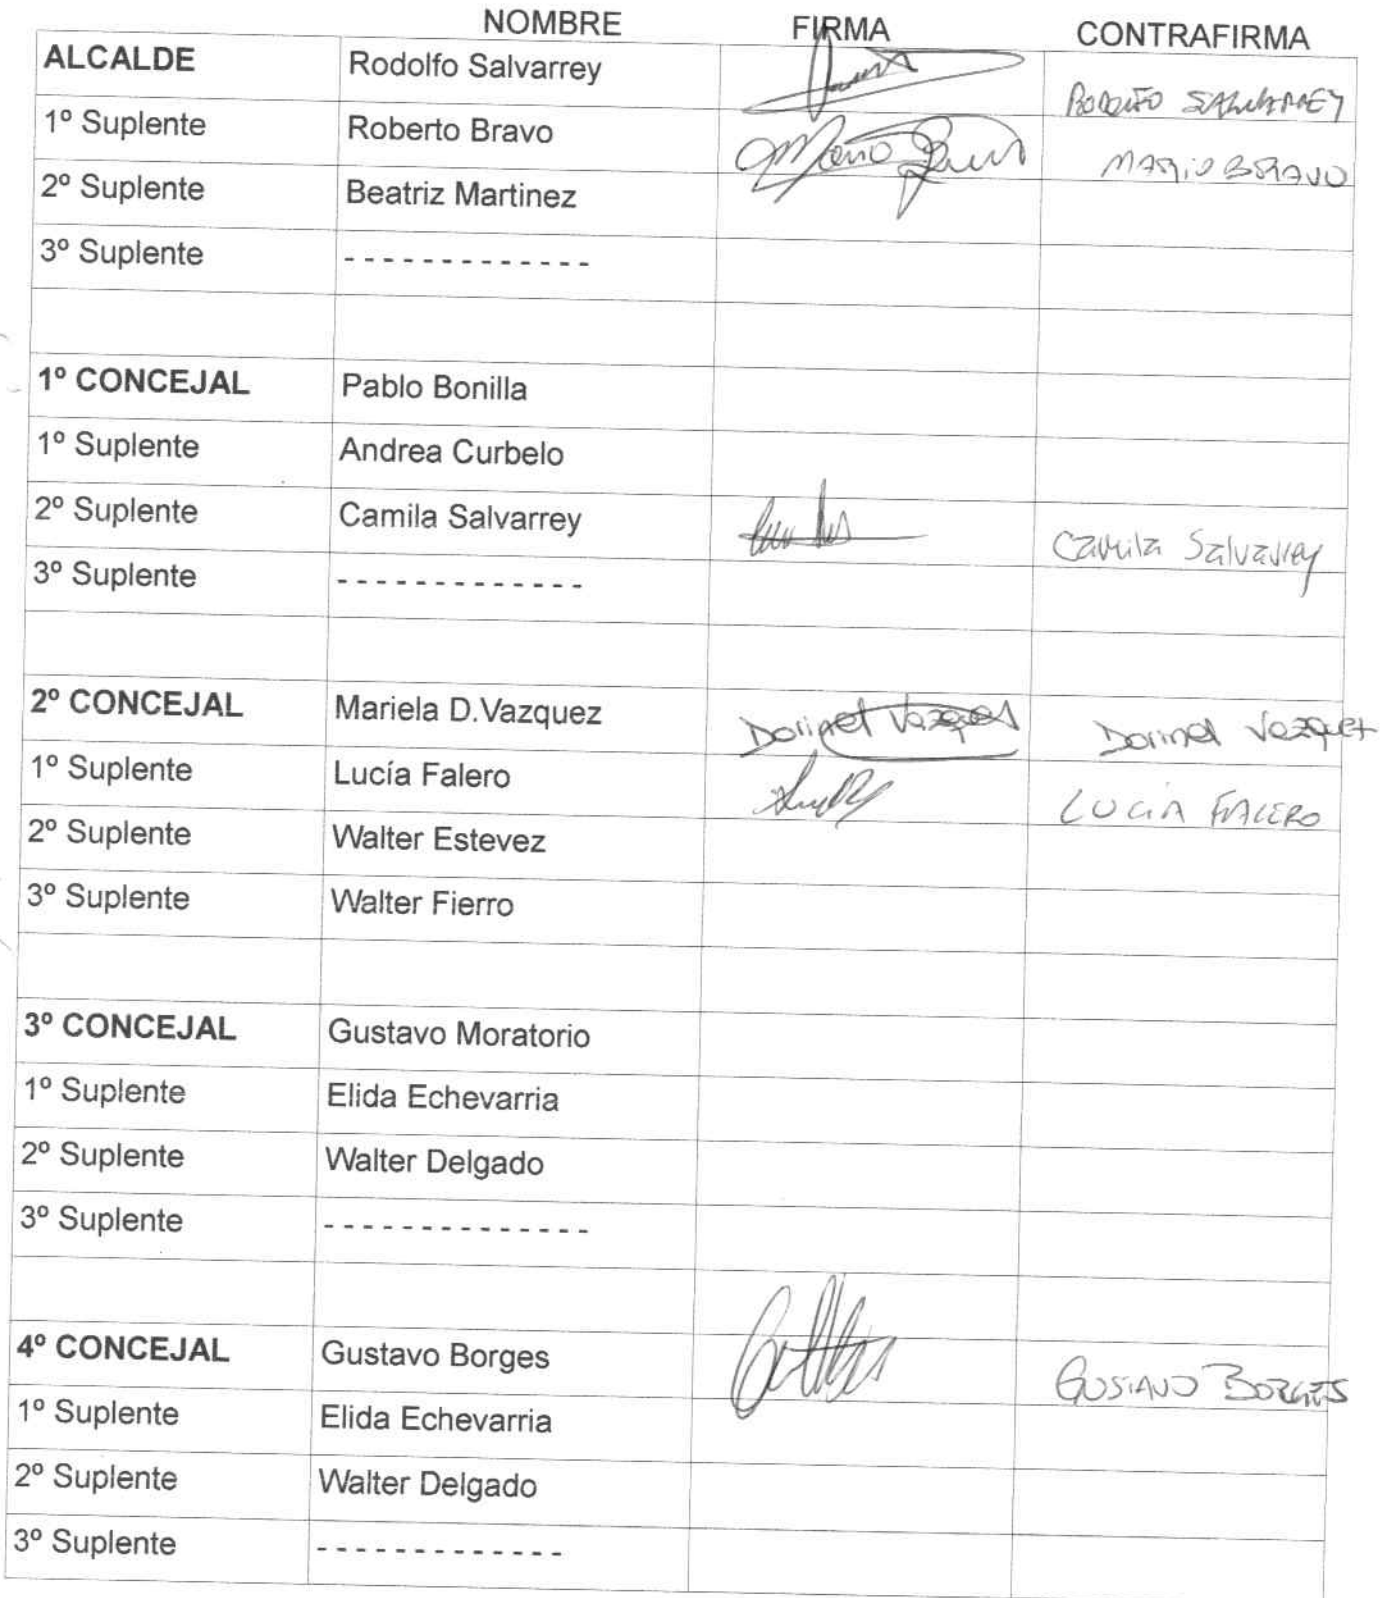 NOMBRE FIRMA CONTRAFIRMA
ALCALDE Rodolfo Salvarrey RODOLFO SALVARREY
1º Suplente Roberto Bravo Mario Bravo MARIO BRAVO
2º Suplente Beatriz Martinez
3º Suplente - - - - - - - - - - - - -
1º CONCEJAL Pablo Bonilla
1º Suplente Andrea Curbelo
2º Suplente Camila Salvarrey Camila Salvarrey
3º Suplente - - - - - - - - - - - - -
2º CONCEJAL Mariela D.Vazquez Dorinel Vazquez Dorinel Vazquez
1º Suplente Lucía Falero LUCÍA FALERO
2º Suplente Walter Estevez
3º Suplente Walter Fierro
3º CONCEJAL Gustavo Moratorio
1º Suplente Elida Echevarria
2º Suplente Walter Delgado
3º Suplente - - - - - - - - - - - - - -
4º CONCEJAL Gustavo Borges GUSTAVO BORGES
1º Suplente Elida Echevarria
2º Suplente Walter Delgado
3º Suplente - - - - - - - - - - - - -